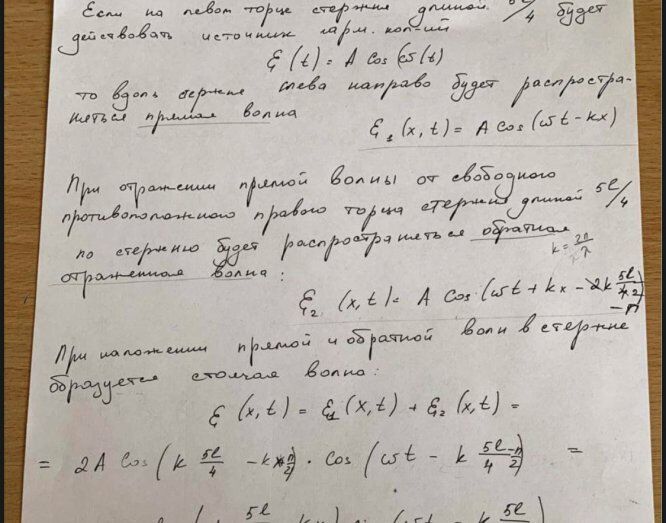 Если на левом торце стержня длиной 5l/4 будет
действовать источник гарм. кол-ий
ξ(t) = A cos(ωt)
то вдоль стержня слева направо будет распростра-
няться прямая волна
ξ₁(x,t) = A cos(ωt - kx)
При отражении прямой волны от свободного
противоположного правого торца стержня длиной 5l/4
по стержню будет распространяться обратная
k = 2π/λ
отраженная волна:
ξ₂(x,t) = A cos(ωt + kx - 2k 5l/4 - π)
При наложении прямой и обратной волн в стержне
образуется стоячая волна:
ξ(x,t) = ξ₁(x,t) + ξ₂(x,t) =
= 2A cos(k 5l/4 - kx + π/2) · cos(ωt - k 5l/4 - π/2) =